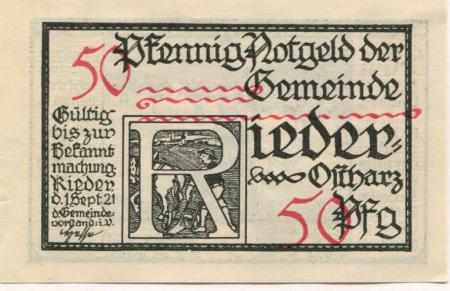 50 Pfennig Notgeld der
Gemeinde
Rieder-
Ostharz
50 Pfg
Gültig
bis zur
Bekannt
machung
Rieder
d. 1 Sept 21
d. Gemeinde-
vorstand: i.V.